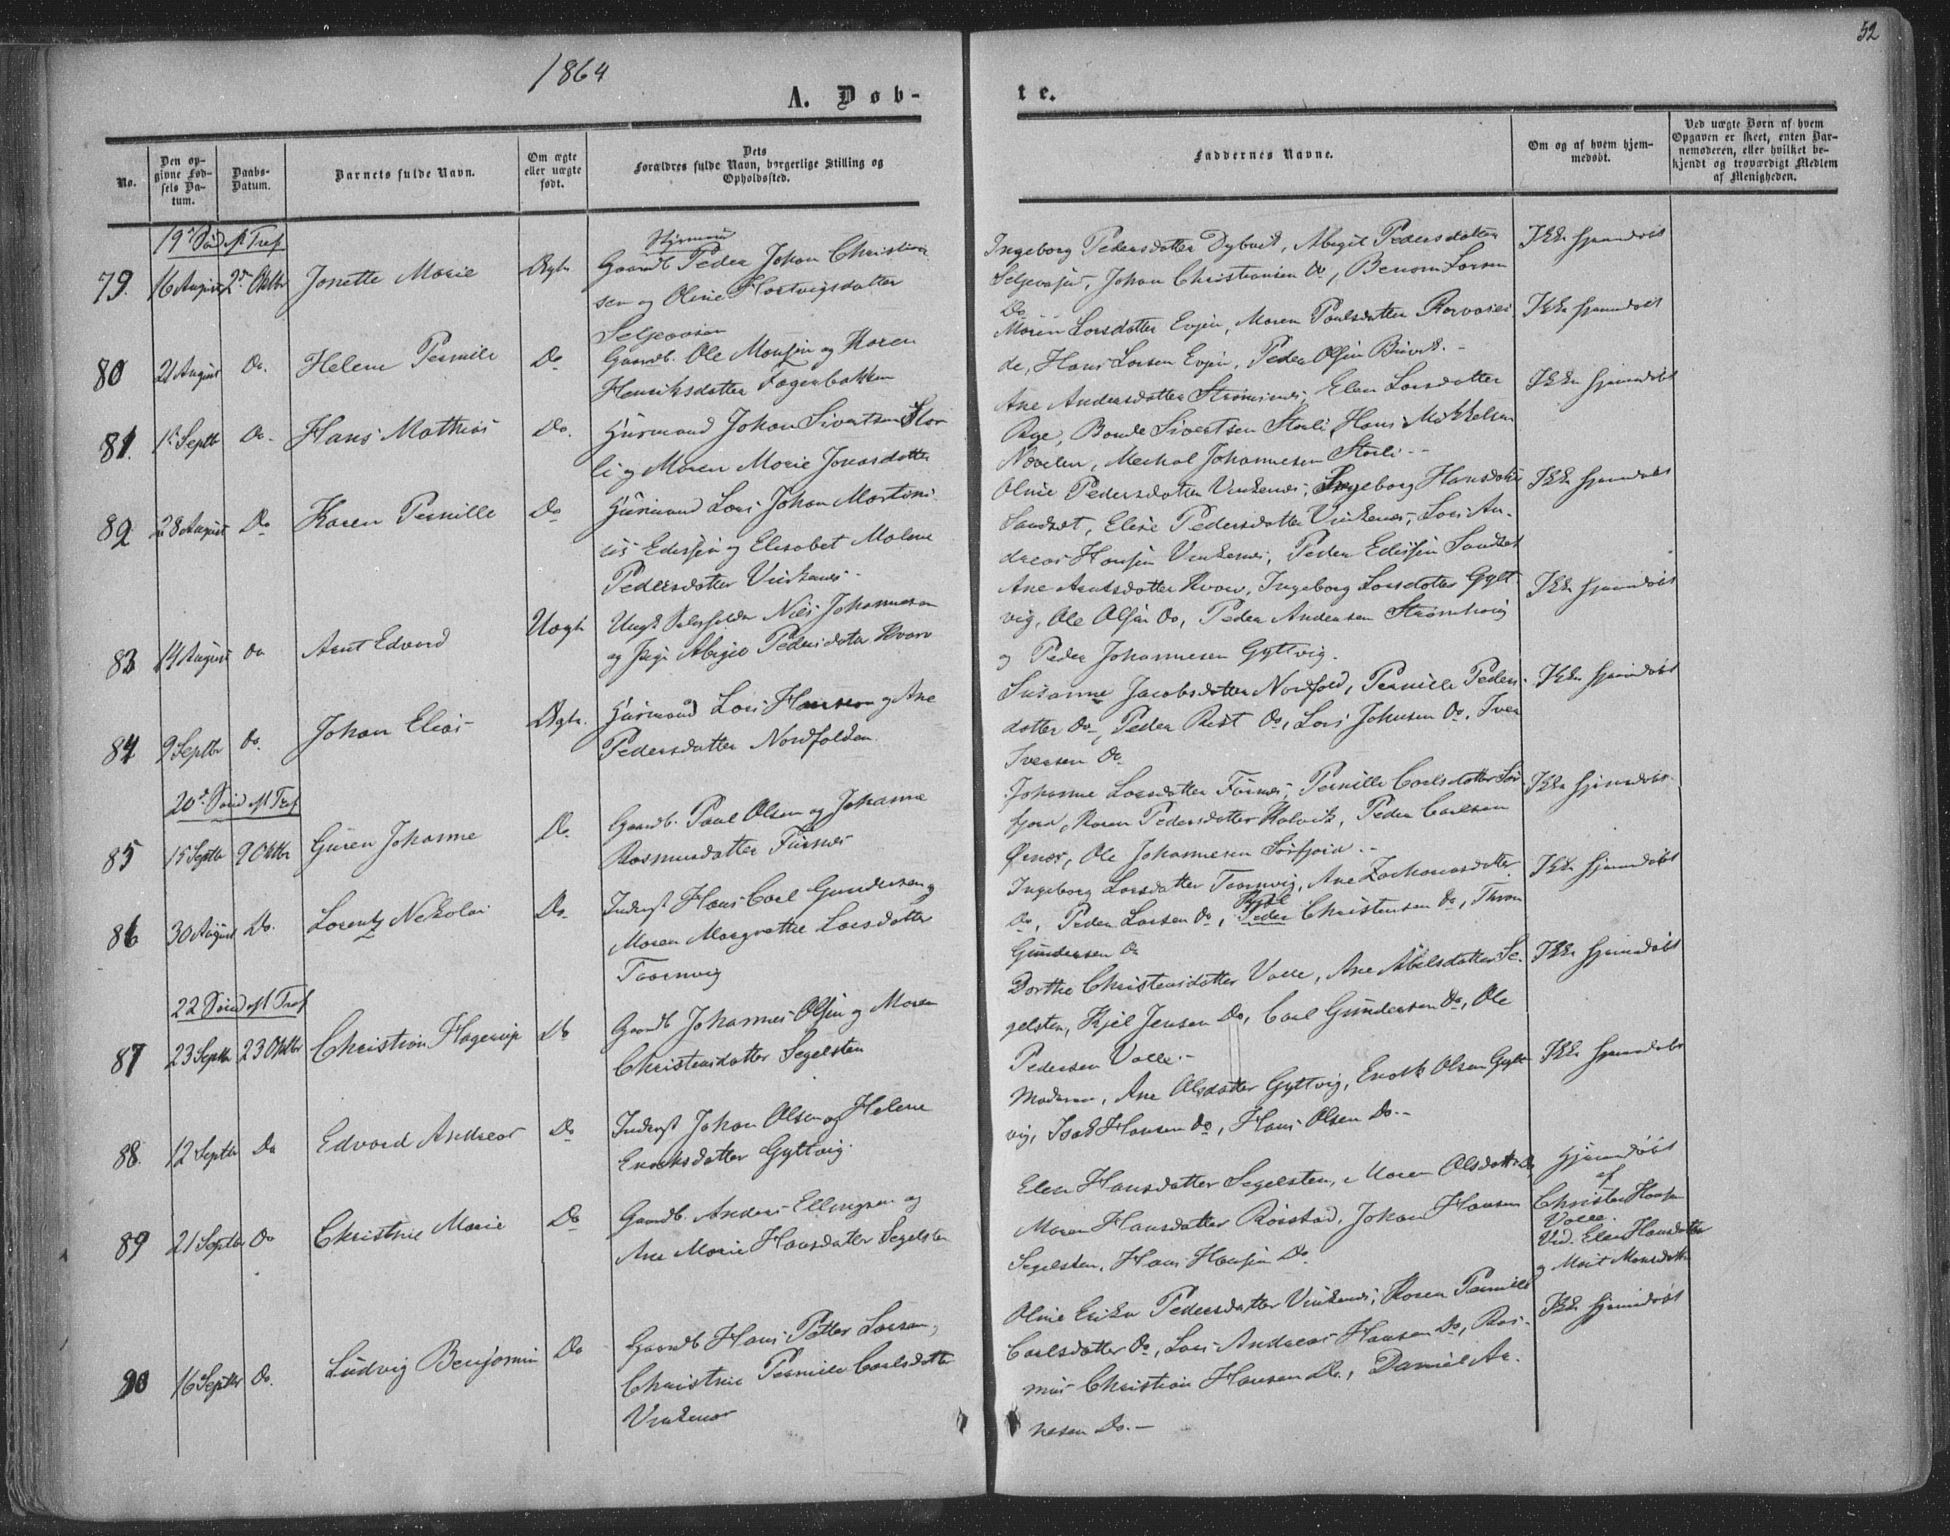 52
1864
A. Døb-
te.
No.
Den op-
givne Fød-
sels Da-
tum.
Daabs-
Datum.
Barnets fulde Navn.
Om ægte
eller uægte
født.
Dets
Forældres fulde Navn, borgerlige Stilling og
Opholdssted.
Faddernes Navne.
Om og af hvem hjem-
medøbt.
Ved uægte Børn af hvem
Opgaven er skeet, enten Bar-
nemoderen, eller hvilket be-
kjendt og troværdigt Medlem
af Menigheden.
79. 16 August 2den Oktbr Jonette Marie Ægte
Gaardb. Peder Johan Christian-
sen og Oline Hartvigsdatter
Seljevasien
Ingeborg Pedersdatter Dybvik, Abigel Pedersdatter
Johan Christiansen Do, Benoni Larsen
Do
Ikke hjemdøbt
80 21 August Do. Helene Pernille Do
Gaardb. Ole Monsen og Karen
Henriksdatter Fagerbakken
Maren Larsdatter Evjen, Maren Paulsdatter
de, Hans Larsen Evjen, Peder Olsen
Ikke hjemdøbt
81. 1ste Septbr Do. Hans Mathias Do.
Huusmand Johan Sivertsen Stor-
li og Maren Marie Jonasdatter
Ane Andersdatter Strømsnes, Elen Larsdatter
Bonde Sivertsen Storli, Hans Mikkelsen
Johannesen Storli
Ikke hjemdøbt
82 28 August Do Karen Pernille Do
Huusmand Lars Johan Martini-
us Edissen og Elisabet Malene
Pedersdatter Vinkenes
Oline Pedersdatter Vinkenes, Ingeborg Hansdatter
Sandset, Elise Pedersdatter Vinkenes, Lars An-
dreas Hansen Vinkenes, Peder Edissen Sandset
Ikke hjemdøbt
83 14 August Do Arnt Edvard Uægte
Ungk. Nils Johannesen
og Pige Abigel Pedersdatter Kvarv
Ane Arntsdatter Kvarv, Ingeborg Larsdatter Gylt-
vig, Ole Olsen Do, Peder Andersen
og Peder Johannesen Gyltvig.
Ikke hjemdøbt
84 9 Septbr Do. Johan Elias Ægte.
Huusmand Lars Hansen og Ane
Pedersdatter Nordfolden.
Susanne Jacobsdatter Nordfold, Pernille Peders-
datter Do, Peder Rist Do, Lars Johnsen Do, Iver
Iversen Do
Ikke hjemdøbt
85 15 Septbr 9 Oktbr Guren Johanne Do.
Gaardb. Paul Olsen og Johanna
Rasmusdatter Furnes
Johanna Larsdatter Furnes, Pernille Carlsdatter Sør-
fjord, Karen Pedersdatter Kalvik, Peder Carlsen
Ørnes, Ole Johannesen Sørfjord.
Ikke hjemdøbt
86 30 August Do. Lorentz Nekolai Do.
Inderst Hans Carl Gundersen og
Maren Margrethe Larsdatter
Taarnvig
Ingeborg Larsdatter Taarnvig, Ane Zachariasdatter
Do, Peder Larsen Do, Peder Christensen Do, Thron
Gundersen Do
Ikke hjemdøbt
87 23 Septbr 23 Oktbr Christian Hagerup Do
Gaardb Johannes Olsen og Maren
Christensdatter Segelsten
Dorthe Christensdatter Valle, Ane Abelsdatter Se-
gelsten, Kjel Jensen Do, Carl Gundersen Do, Ole
Pedersen Valle.
Ikke hjemdøbt
88. 12 Septbr Do Edvard Andreas Do
Inderst Johan Olsen og Helene
Enoksdatter Gyltvig
Moderen, Ane Olsdatter Gyltvig, Enok Olsen Gylt-
vig, Isak Hansen Do, Hans Olsen Do.
Ikke hjemdøbt
89 21 Septbr Do Christine Marie Do
Gaardb. Anders Ellingsen og
Ane Marie Hansdatter Segelsten
Elen Hansdatter Segelsten, Maren Olsdatter Do
Maren Hansdatter Røsstad, Johan Hansen
Segelsten, Hans Hansen Do
Hjemdøbt
af
Christen Hansen
Valle.
Vid. Elen Hansdatter
og Marit Monsdatter
90 16 Septbr Do. Ludvig Benjamin Do
Gaardb Hans Petter Larsen,
Christine Pernille Carlsdatter
Vinkenes
Oline Erika Pedersdatter Vinkenes, Karen Pernille
Carlsdatter Do, Lars Andreas Hansen Do, Ras-
mus Christian Hansen Do., Daniel Ar-
nesen Do.
Ikke hjemdøbt